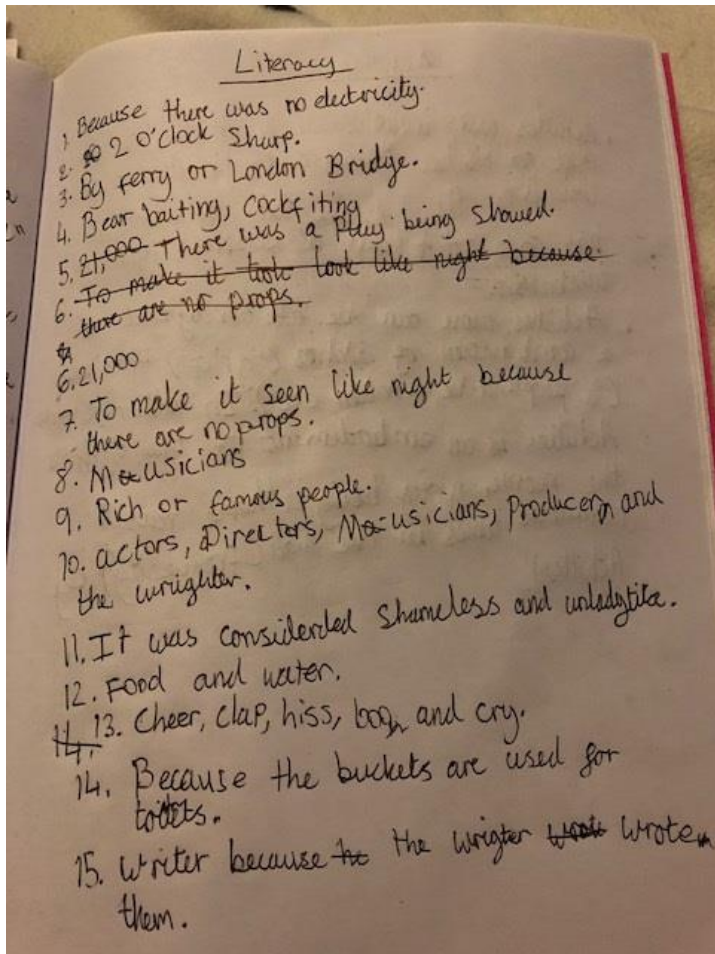 Literacy
1. Because there was no electricity.
2. 2 O'clock Sharp.
3. By ferry or London Bridge.
4. Bear baiting, Cockfiting
5. 21,000 There was a Play being Showed.
6. To make it look look like night because
there are no props.
6. 21,000
7. To make it seen like night because
there are no props.
8. Musicians
9. Rich or famous people.
10. actors, Directors, Musicians, Producer, and
the wrighter.
11. It was considerded Shameless and unladylike.
12. Food and water.
14. 13. Cheer, Clap, hiss, boo, and cry.
14. Because the buckets are used for
toilets.
15. Writer because he the wrigter wrote wrote
them.